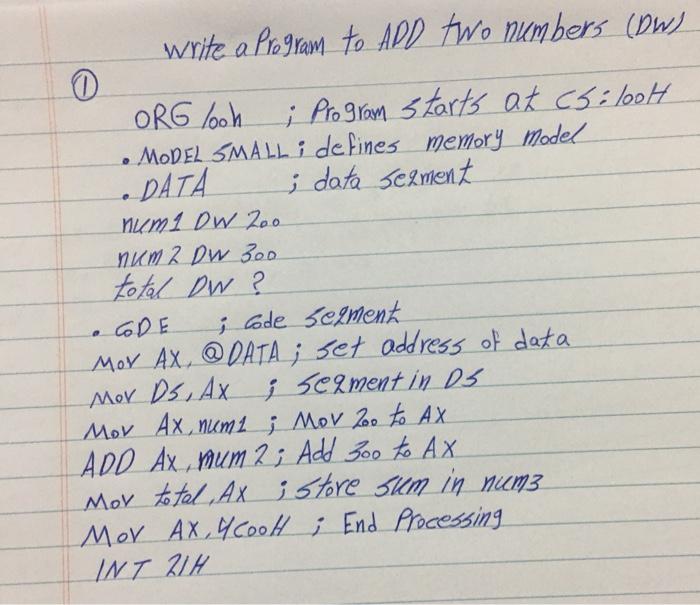 write a Program to ADD two numbers (DW)
①
ORG 100h ; Program starts at CS:100H
.MODEL SMALL ; defines memory model
.DATA ; data segment
num1 DW 200
num2 DW 300
total DW ?
.CODE ; Code segment
Mov AX, @DATA ; set address of data
Mov DS, AX ; segment in DS
Mov AX, num1 ; Mov 200 to AX
ADD AX, num2 ; Add 300 to AX
Mov total, AX ; store sum in num3
Mov AX, 4C00H ; End Processing
INT 21H